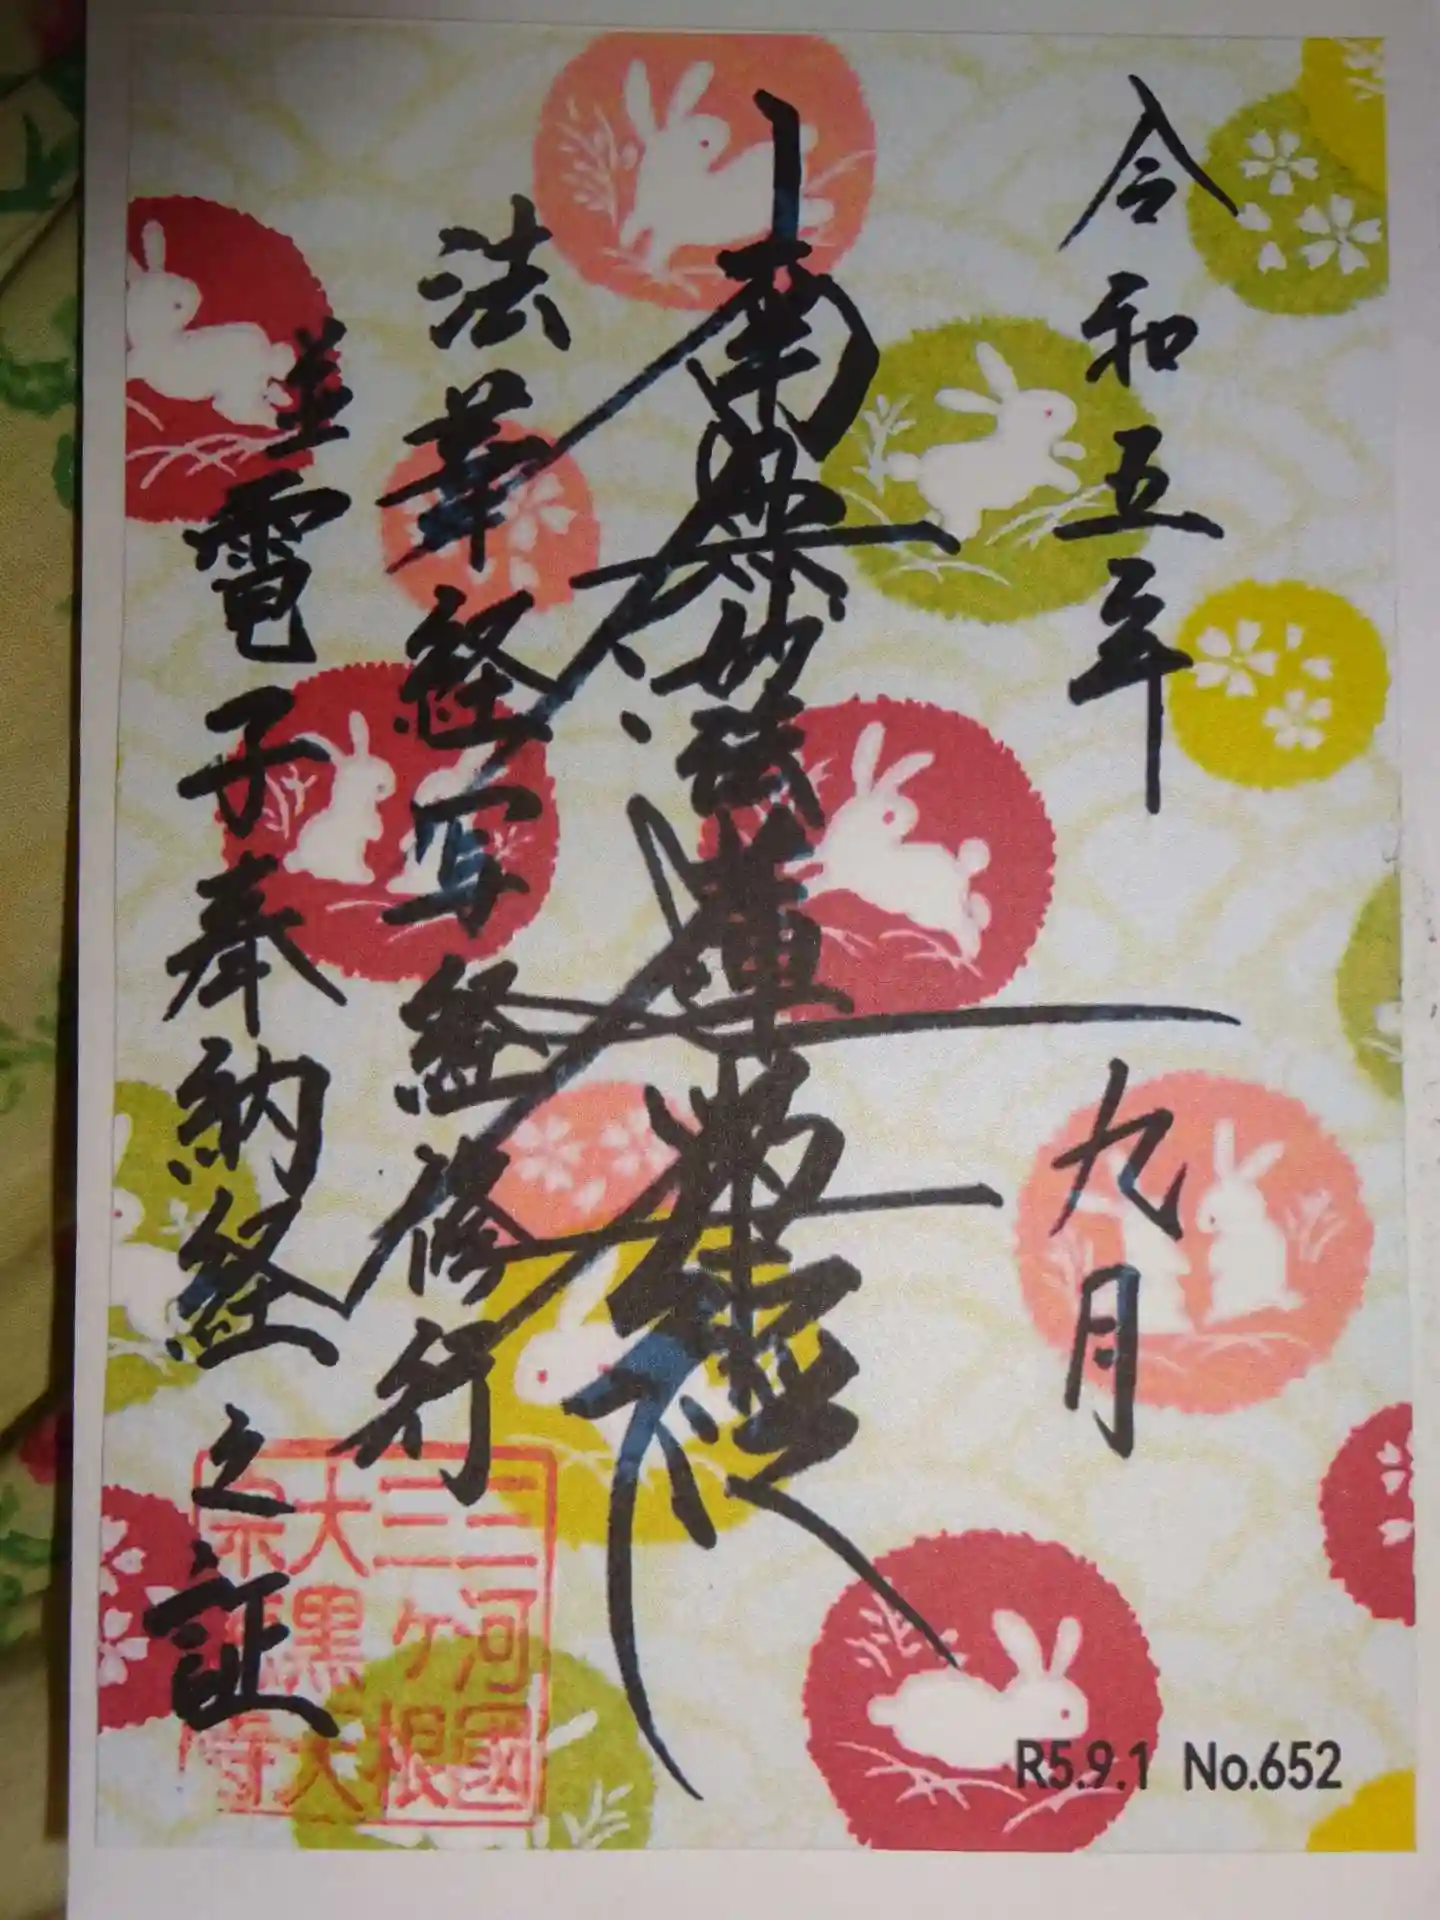 令和五年 九月
南無妙法蓮華経
法華経写経修行
並電子奉納経之証
三河國
三ヶ根
大黒天
R5.9.1 No.652